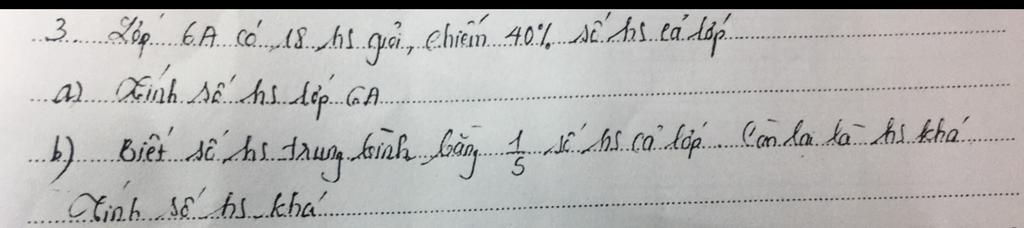 3. Lớp 6A có 18 hs giỏi, chiếm 40% số hs cả lớp
a) Tính số hs lớp 6A
b) Biết số hs trung bình bằng 1/5 số hs cả lớp. Còn lại là hs khá
Tính số hs khá